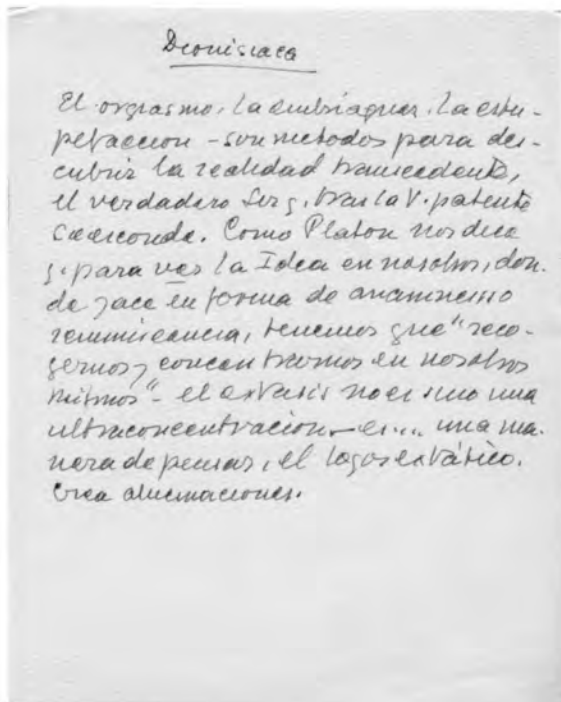 Dionisiaca
El orgiasmo, la embriaguez, la estu-
pefaccion - son metodos para des-
cubrir la realidad transcendente,
el verdadero Ser q. tras la V. patente
se esconde. Como Platon nos dice
q. para ver la Idea en nosotros, don-
de yace en forma de anamnesis o
reminiscencia, tenemos que "reco-
gernos y concentrarnos en nosotros
mismos" - el extasis no es sino una
ultraconcentracion - es... una ma-
nera de pensar, el logos extático.
Crea alucinaciones.